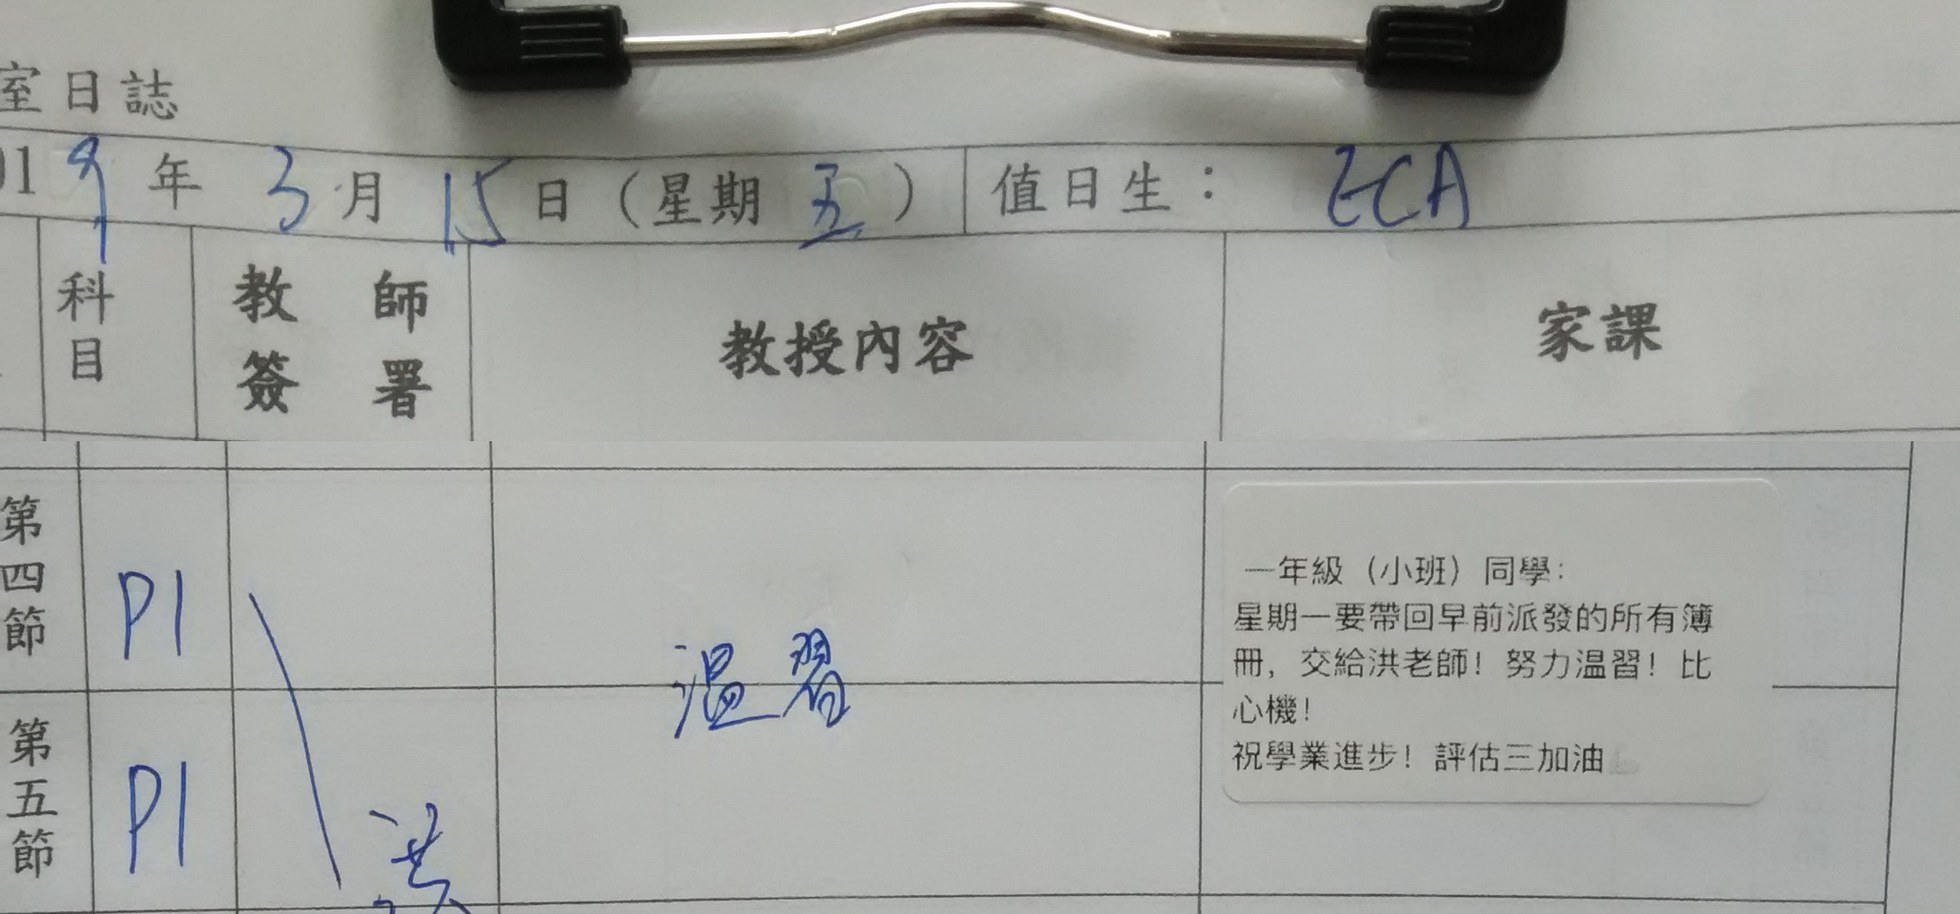 室日誌
019年3月15日（星期五）值日生：ECA
科目 教師簽署 教授內容 家課
第四節 P1
温習
第五節 P1 洪
一年級（小班）同學：
星期一要帶回早前派發的所有簿
冊，交給洪老師！努力温習！比
心機！
祝學業進步！評估三加油